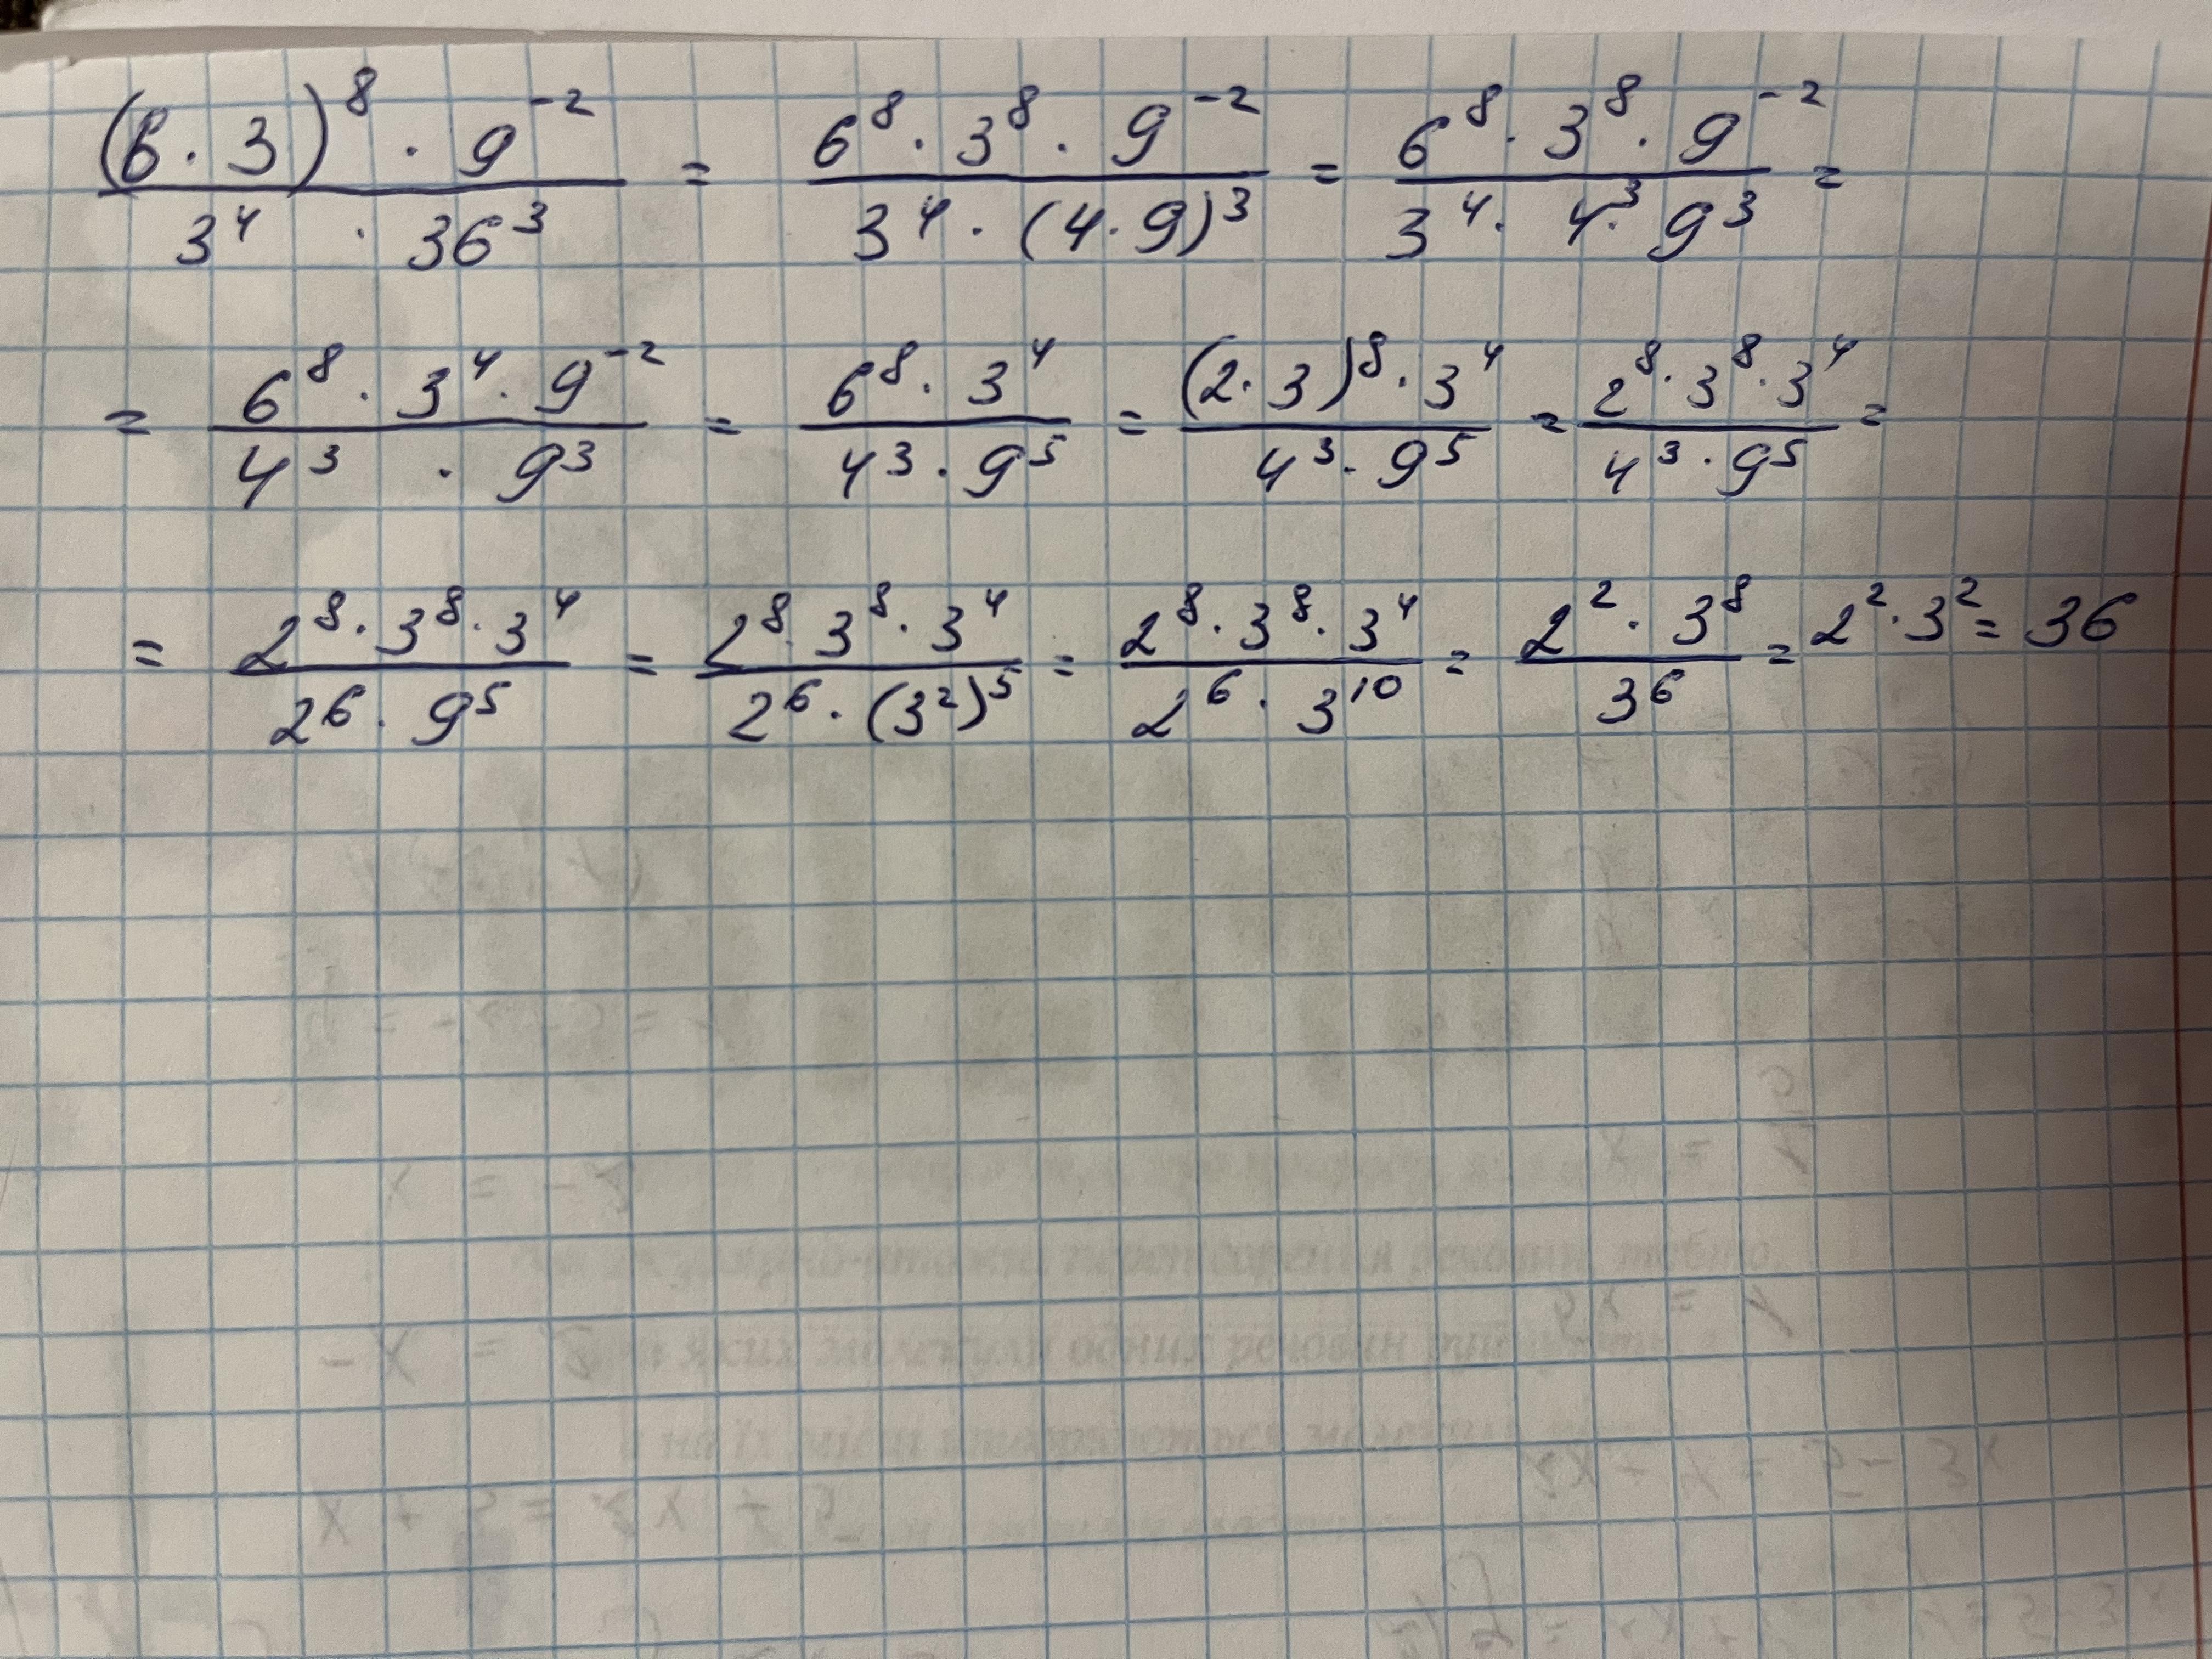 (6 · 3)⁸ · 9⁻² / 3⁴ · 36³ = 6⁸ · 3⁸ · 9⁻² / 3⁴ · (4 · 9)³ = 6⁸ · 3⁸ · 9⁻² / 3⁴ · 4³ · 9³ =
= 6⁸ · 3⁴ · 9⁻² / 4³ · 9³ = 6⁸ · 3⁴ / 4³ · 9⁵ = (2 · 3)⁸ · 3⁴ / 4³ · 9⁵ = 2⁸ · 3⁸ · 3⁴ / 4³ · 9⁵ =
= 2⁸ · 3⁸ · 3⁴ / 2⁶ · 9⁵ = 2⁸ · 3⁸ · 3⁴ / 2⁶ · (3²)⁵ = 2⁸ · 3⁸ · 3⁴ / 2⁶ · 3¹⁰ = 2² · 3⁸ / 3⁶ = 2² · 3² = 36